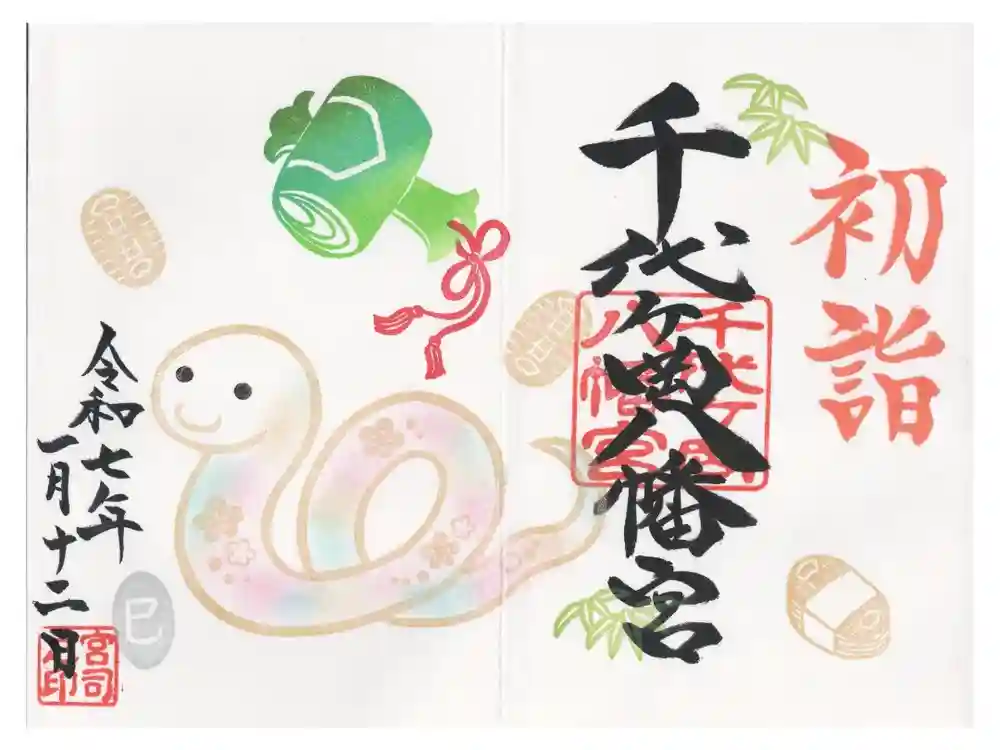 初詣
千代ヶ岡八幡宮
千代ヶ岡八幡宮
令和七年
一月十二日
巳
宮司之印